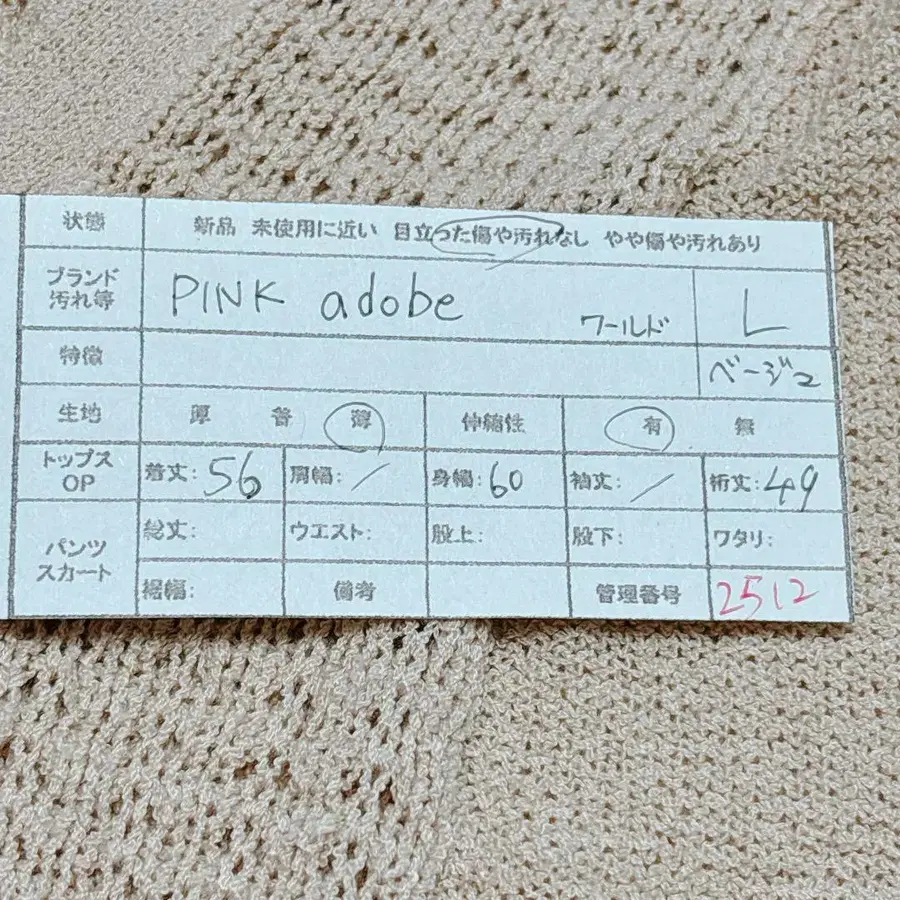 状態 新品 未使用に近い 目立った傷や汚れなし やや傷や汚れあり
ブランド 汚れ等 PINK adobe ワールド L
特徴 ベージュ
生地 厚 普 薄 伸縮性 有 無
トップス OP 着丈:56 肩幅:/ 身幅:60 袖丈:/ 裄丈:49
パンツ スカート 総丈: ウエスト: 股上: 股下: ワタリ:
裾幅: 備考 管理番号 2512